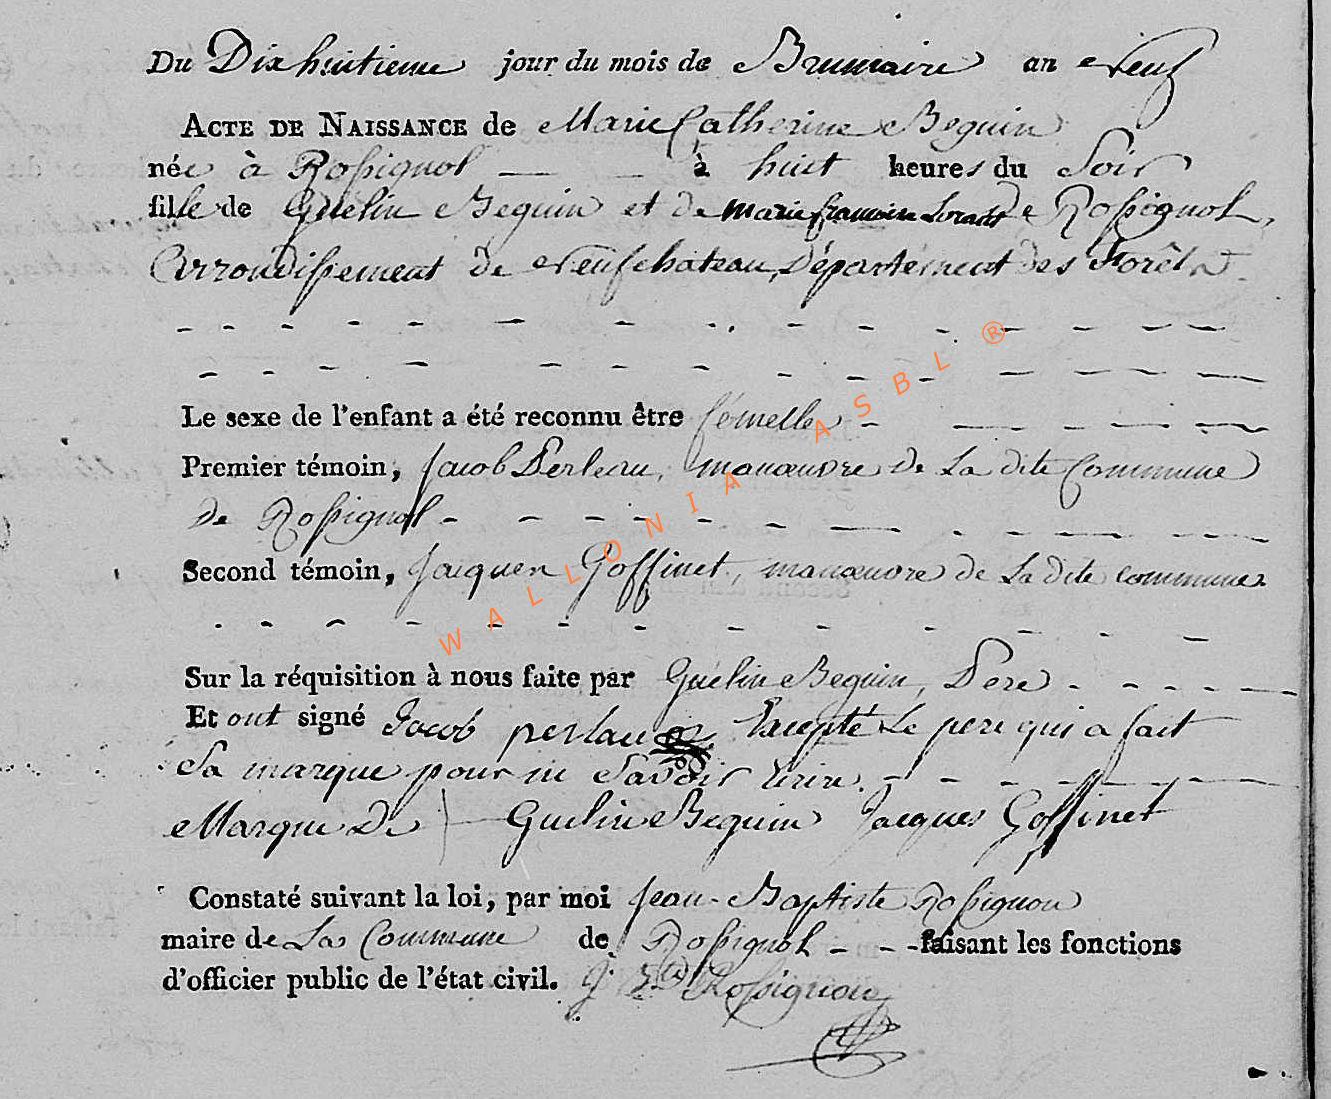 Du Dix huitieme jour du mois de Brumaire an neuf
ACTE DE NAISSANCE de Marie Catherine Beguin
née à Rossignol — — à huit heures du Soir
fille de Guélin Beguin et de marie francoise de Rossignol,
Arrondissement de Neufchateau, Département des Forêts
Le sexe de l'enfant a été reconnu être fémelle
Premier témoin, Jacob Perleau, manœuvre de La dite Commune
de Rossignol
Second témoin, Jacques Goffinet, manœuvre de La dite commune
Sur la réquisition à nous faite par Guélin Beguin, Pere
Et ont signé Jacob perlau Excepté Le pere qui a fait
Sa marque pour ne Savoir Ecrire.
Marque De Guelin Beguin Jacques Goffinet
Constaté suivant la loi, par moi Jean-Baptiste Rossignon
maire de La Commune de Rossignol faisant les fonctions
d'officier public de l'état civil. J. Bte Rossignon
WALLONIA ASBL ®